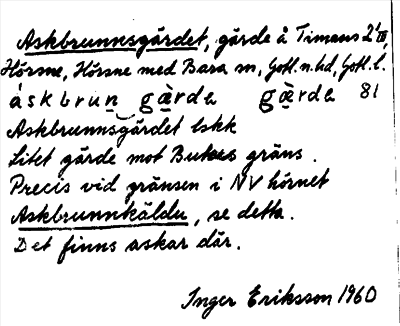 Askbrunnsgärdet, gärde å Timans 2/III,
Hörsne, Hörsne med Bara sn, Gotl. n. hd, Gotl. l.
áskbrun gæ̀rdɐ gæ̀rdɐ 81
Askbrunnsgärdet lskk
Litet gärde mot Butes gräns.
Precis vid gränsen i NV hörnet
Askbrunnkäldu, se detta.
Det finns askar där.
Inger Eriksson 1960